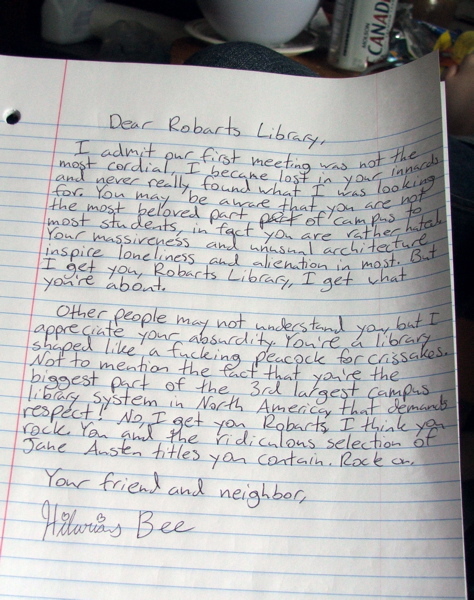 CANADA
Dear Robarts Library,
I admit our first meeting was not the
most cordial, I became lost in your innards
and never really found what I was looking
for. You may be aware that you are not
the most beloved part of campus to
most students, in fact you are rather hated.
Your massiveness and unusual architecture
inspire loneliness and alienation in most. But
I get you, Robarts Library, I get what
you're about.
Other people may not understand you, but I
appreciate your absurdity. You're a library
shaped like a fucking peacock for crissakes.
Not to mention the fact that you're the
biggest part of the 3rd largest campus
library system in North America that demands
respect! No, I get you Robarts I think you
rock. You and the ridiculous selection of
Jane Austen titles you contain. Rock on.
Your friend and neighbor,
Bee